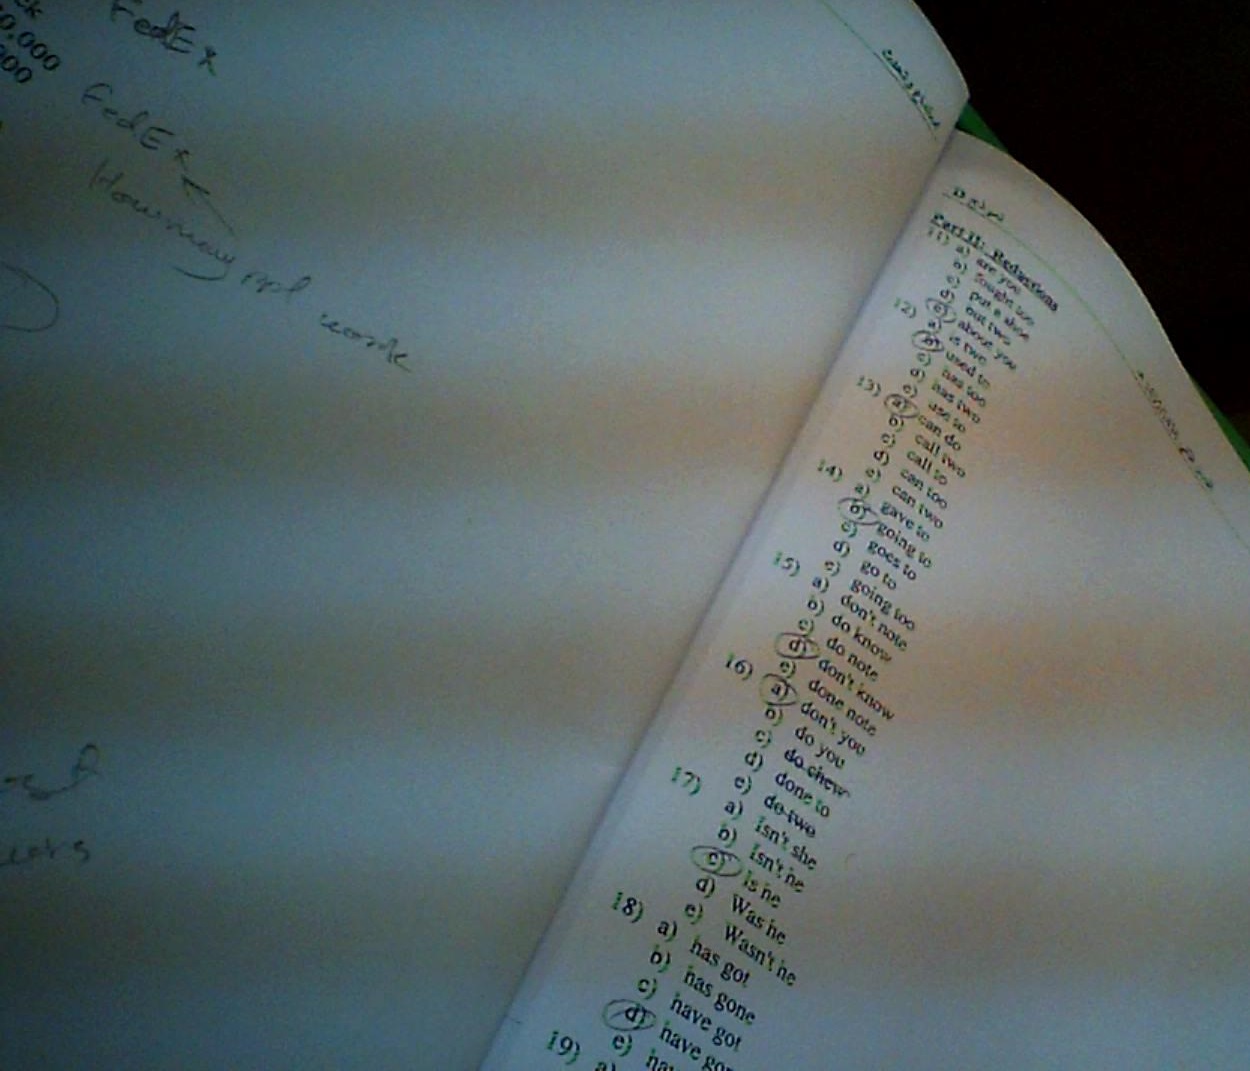 0,000
FedEx
FedEx
How many ppl work
Part II: Reductions
11) a) are you
b) fought too
c) put a shoe
d) out two
e) about you
12) a) is two
b) used to
c) has too
d) has two
e) use to
13) a) can do
b) call two
c) call to
d) can too
e) can two
14) a) gave to
b) going to
c) goes to
d) go to
e) going too
15) a) don't note
b) do know
c) do note
d) don't know
e) done note
16) a) don't you
b) do you
c) do chew
d) done to
e) do two
17) a) isn't she
b) isn't he
c) is he
d) Was he
e) Wasn't he
18) a) has got
b) has gone
c) have got
d) have gon
e)
19) a)